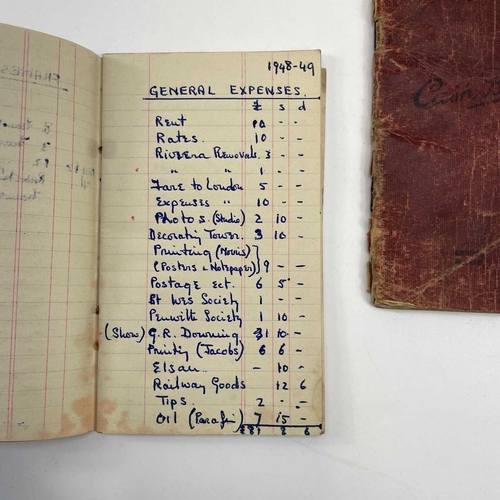 1948-49
GENERAL EXPENSES.
£ s d
Rent 10 - -
Rates. 10 - -
Riviera Removals. 3 - -
" " 1 - -
Fare to London 5 - -
Expenses " 10 - -
Photos (Studio) 2 10 -
Decorating Tower. 3 10 -
Printing (Morris)
(Posters & Notepaper) 9 - -
Postage ect. 6 5 -
St Ives Society 1 - -
Penwith Society 1 10 -
(Show) G.R. Downing 10 -
Printing (Jacobs) 6 6 -
Elsan. - 10 -
Railway Goods 12 6
Tips. 2 - -
Oil (Parafin) 7 15 -
£81 8 6